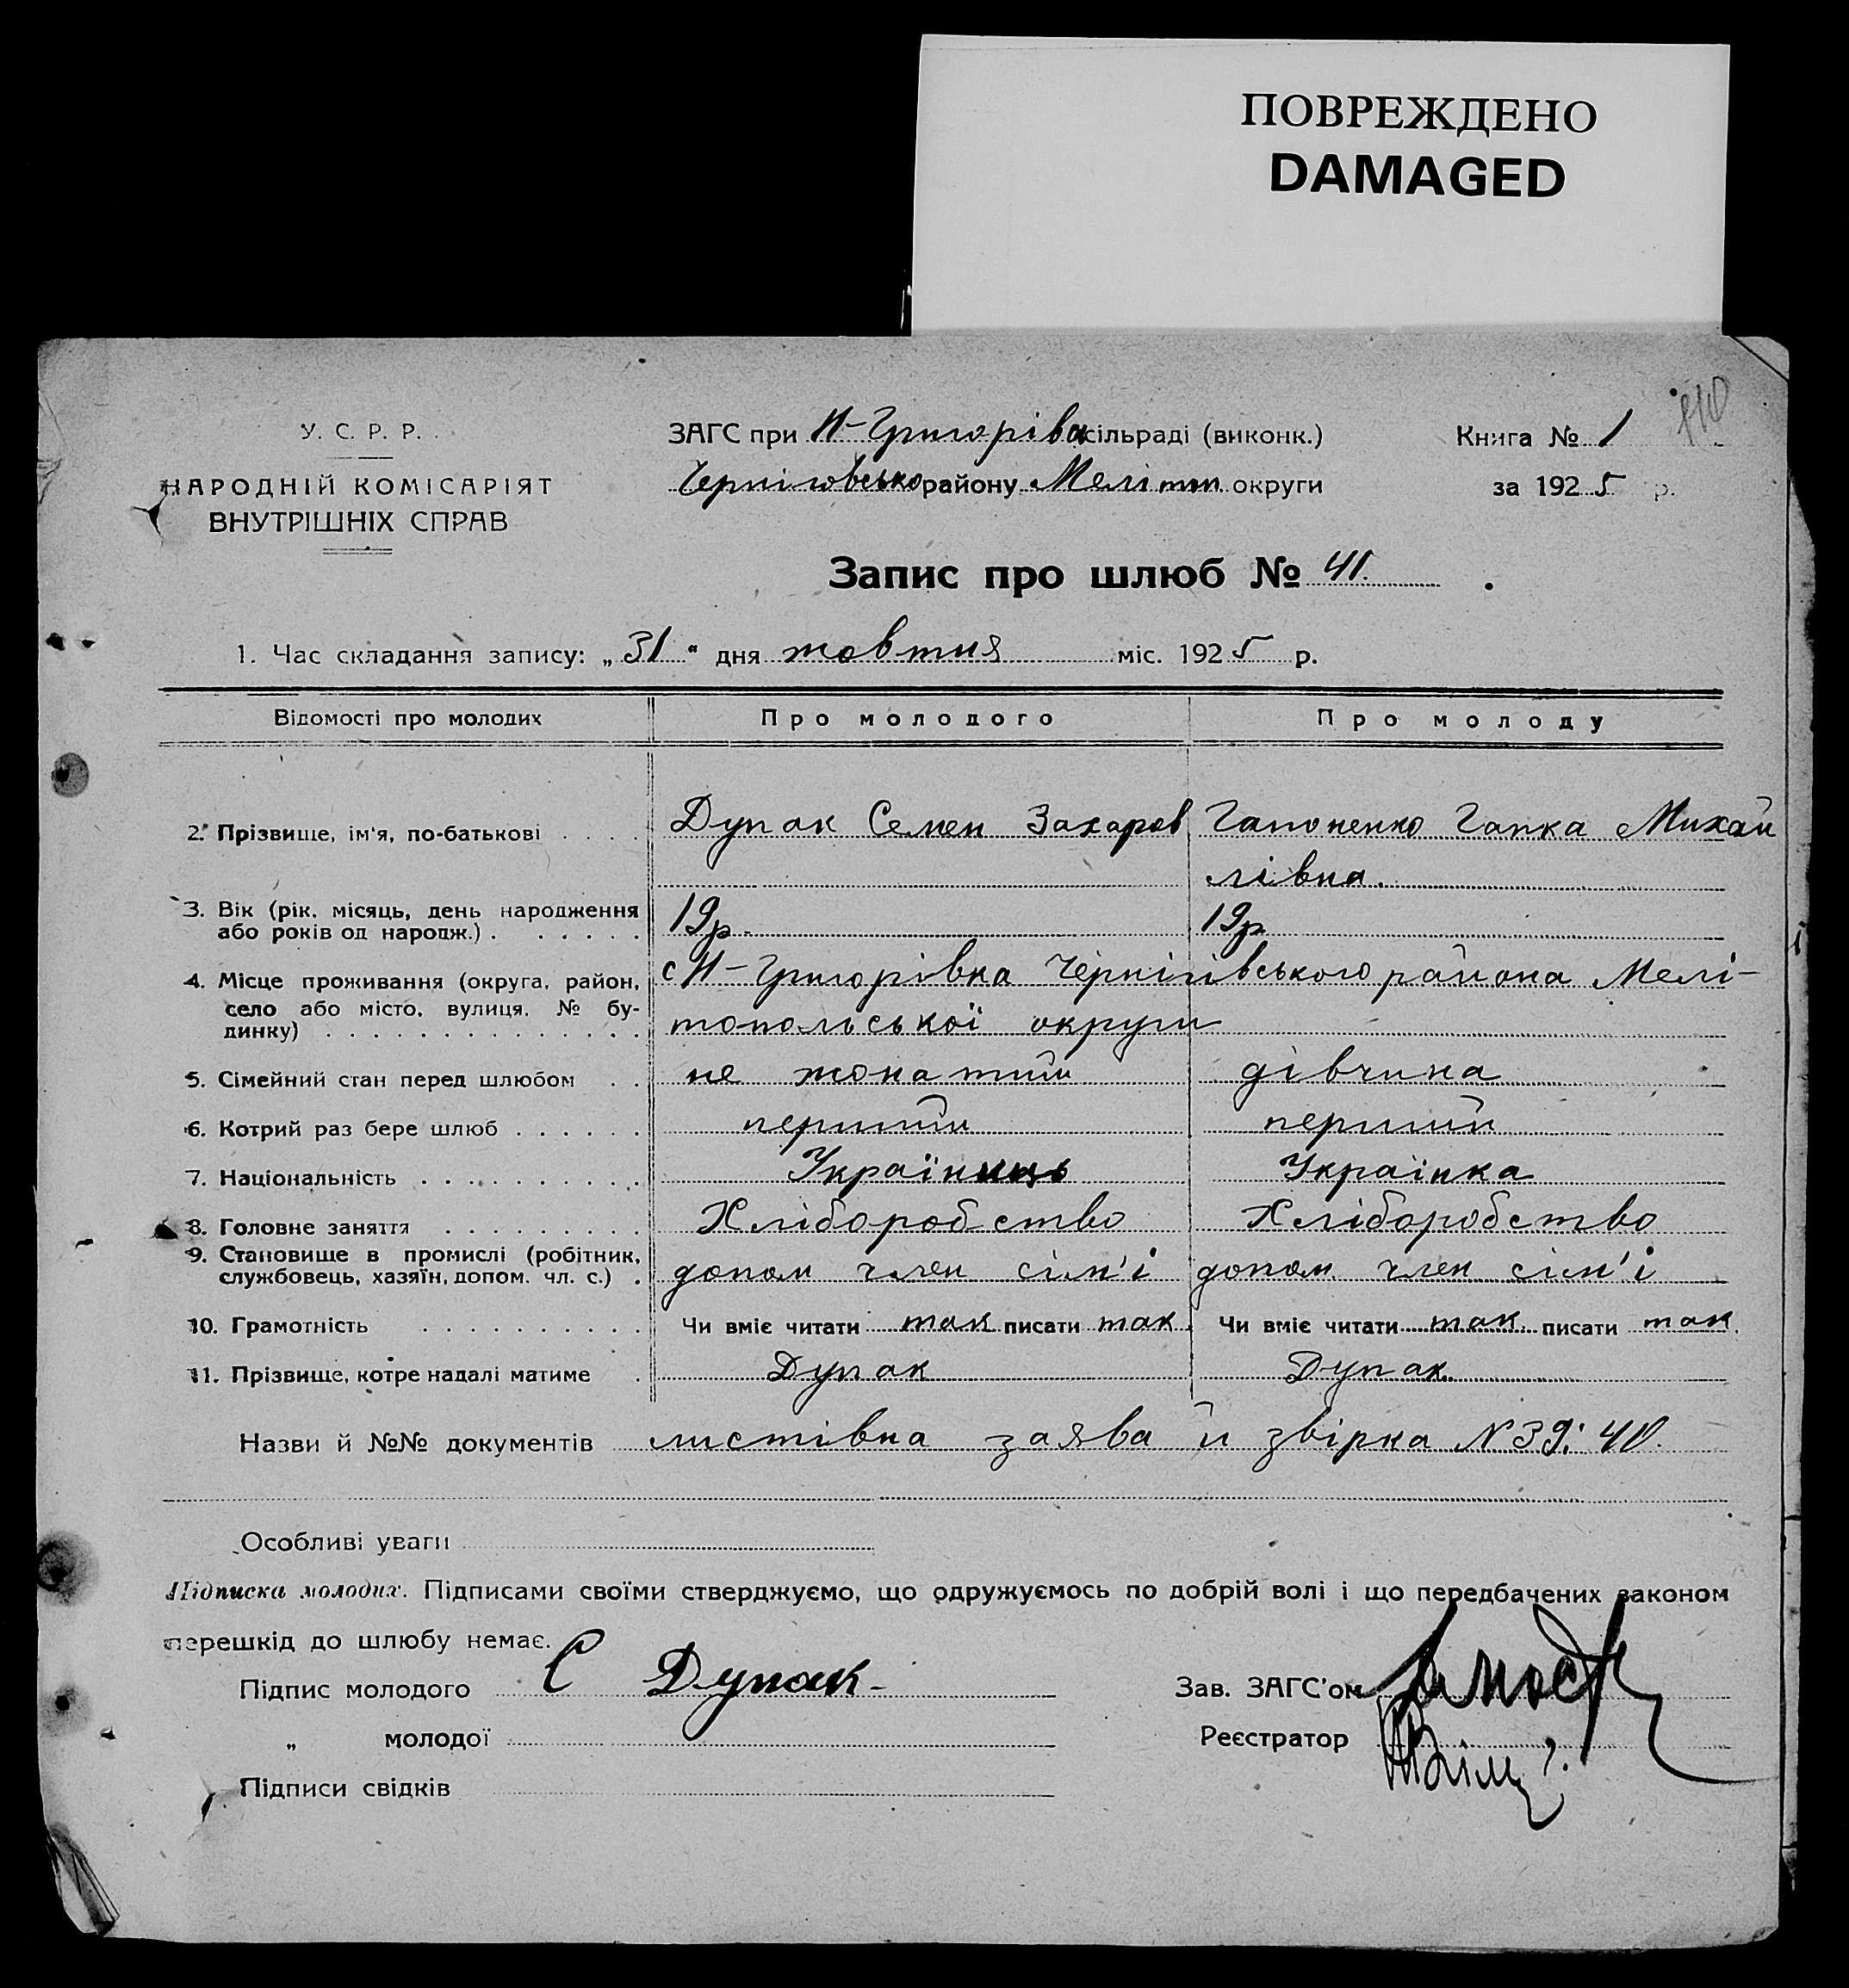 ПОВРЕЖДЕНО
DAMAGED
У. С. Р. Р.
НАРОДНІЙ КОМІСАРІЯТ
ВНУТРІШНІХ СПРАВ
ЗАГС при Н-Григорівск сільраді (виконк.)
Черніговсько району Меліт округи
Книга № 1
за 1925 р.
Запис про шлюб № 41.
1. Час складання запису: „31" дня жовтня міс. 1925 р.
Відомості про молодих Про молодого Про молоду
2. Прізвище, ім'я, по-батькові . . . . Дупак Семен Захаров Гапоненко Гапка Михай
лівна.
3. Вік (рік. місяць, день народження
або років од народж.) . . . . . . 19р. 19р
4. Місце проживання (округа, район, с Н-Григорівка Чернігівського района Мелі-
село або місто, вулиця, № бу-
динку) . . . . . . . . . . . . . . топольської округи
5. Сімейний стан перед шлюбом . . не жонатий дівчина
6. Котрий раз бере шлюб . . . . . . перший перший
7. Національність . . . . . . . . . . Українець Українка
8. Головне заняття . . . . . . . . . Хліборобство Хліборобство
9. Становище в промислі (робітник,
службовець, хазяїн, допом. чл. с.) . допом член сім'ї допом. член сім'ї
10. Грамотність . . . . . . . . . . Чи вміє читати так писати так Чи вміє читати так писати так.
11. Прізвище, котре надалі матиме . Дупак Дупак.
Назви й №№ документів листівна заява й звірка N 39: 40.
Особливі уваги
Підписка молодих. Підписами своїми стверджуємо, що одружуємось по добрій волі і що передбачених законом
перешкід до шлюбу немає.
Підпис молодого С Дупак- Зав. ЗАГС'ом
„ молодої Реєстратор
Підписи свідків